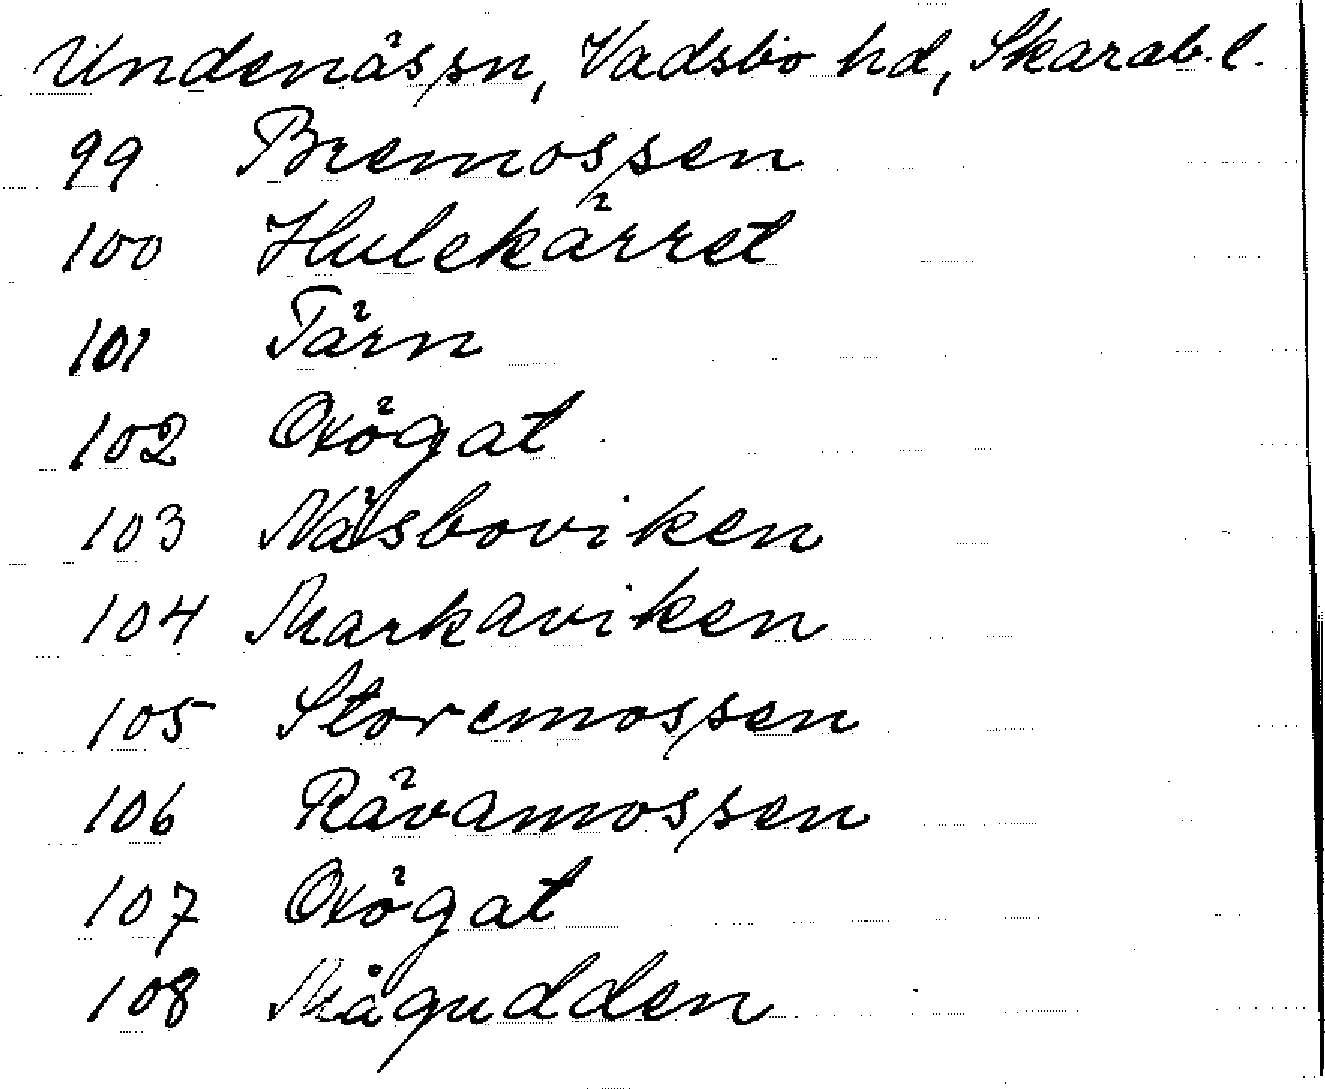 Undenäs sn, Vadsbo hd, Skarab. l.
99 Bremossen
100 Hulekärret
101 Tärn
102 Oxögat
103 Näsboviken
104 Markaviken
105 Storemossen
106 Rävamossen
107 Oxögat
108 Mågudden